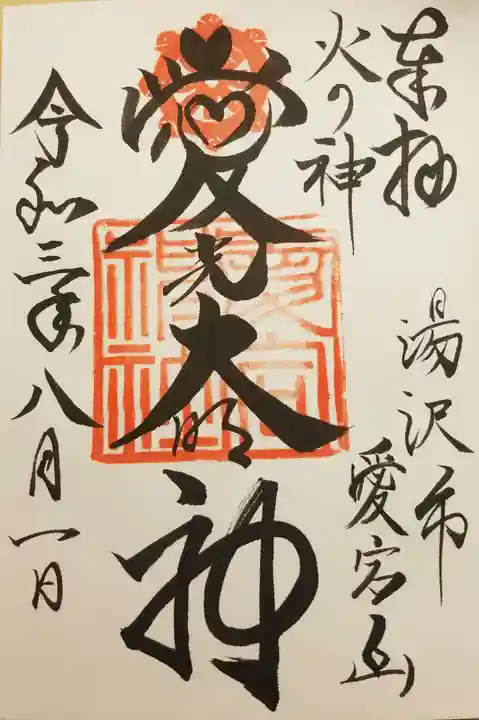 奉拝
火の神
湯沢市
愛宕山
愛宕大明神
令和三年八月一日
愛宕神社